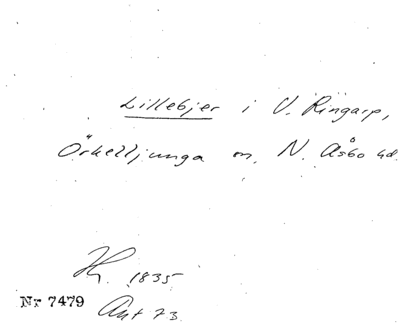 Lillebjer i V. Ringarp,
Örkelljunga sn, N. Åsbo hd.
1835
Nr 7479
Ant 73